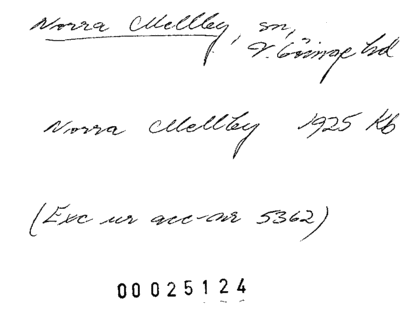 Norra Mellby, sn,
V. Göinge hd
Norra Mellby 1925 Kb
(Exc ur acc-nr 5362)
00025124